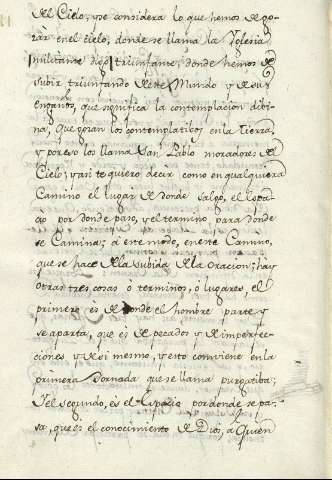 del Cielo, y se considera lo que hemos de go-
zar en el cielo, donde se llama la Iglesia
militante digo triunfante, donde hemos de
subir triunfando de este Mundo y de sus
engaños, que significa la contemplacion dibi-
na, que gozan los contemplatibos en la tierra,
y por eso los llama San Pablo moradores de
Cielo; y asi te quiero decir como en qualquiera
Camino el lugar de donde salgo, el espa-
cio por donde paso, y el termino para donde
se Camina; a este modo, en este Camino,
que se hace de la subida de la oracion; hay
otras tres cosas ò terminos, ò lugares, el
primero es de donde el hombre parte y
se aparta, que es de pecados y de imperfec-
ciones y de si mismo, y esto combiene en la
primera Jornada que se llama purgatiba;
Y el segundo, es el Espazio por donde se pa-
sa, que es el conocimiento de Dios, a Quien